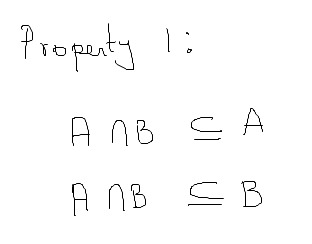 Property 1:
A ∩ B ⊆ A
A ∩ B ⊆ B